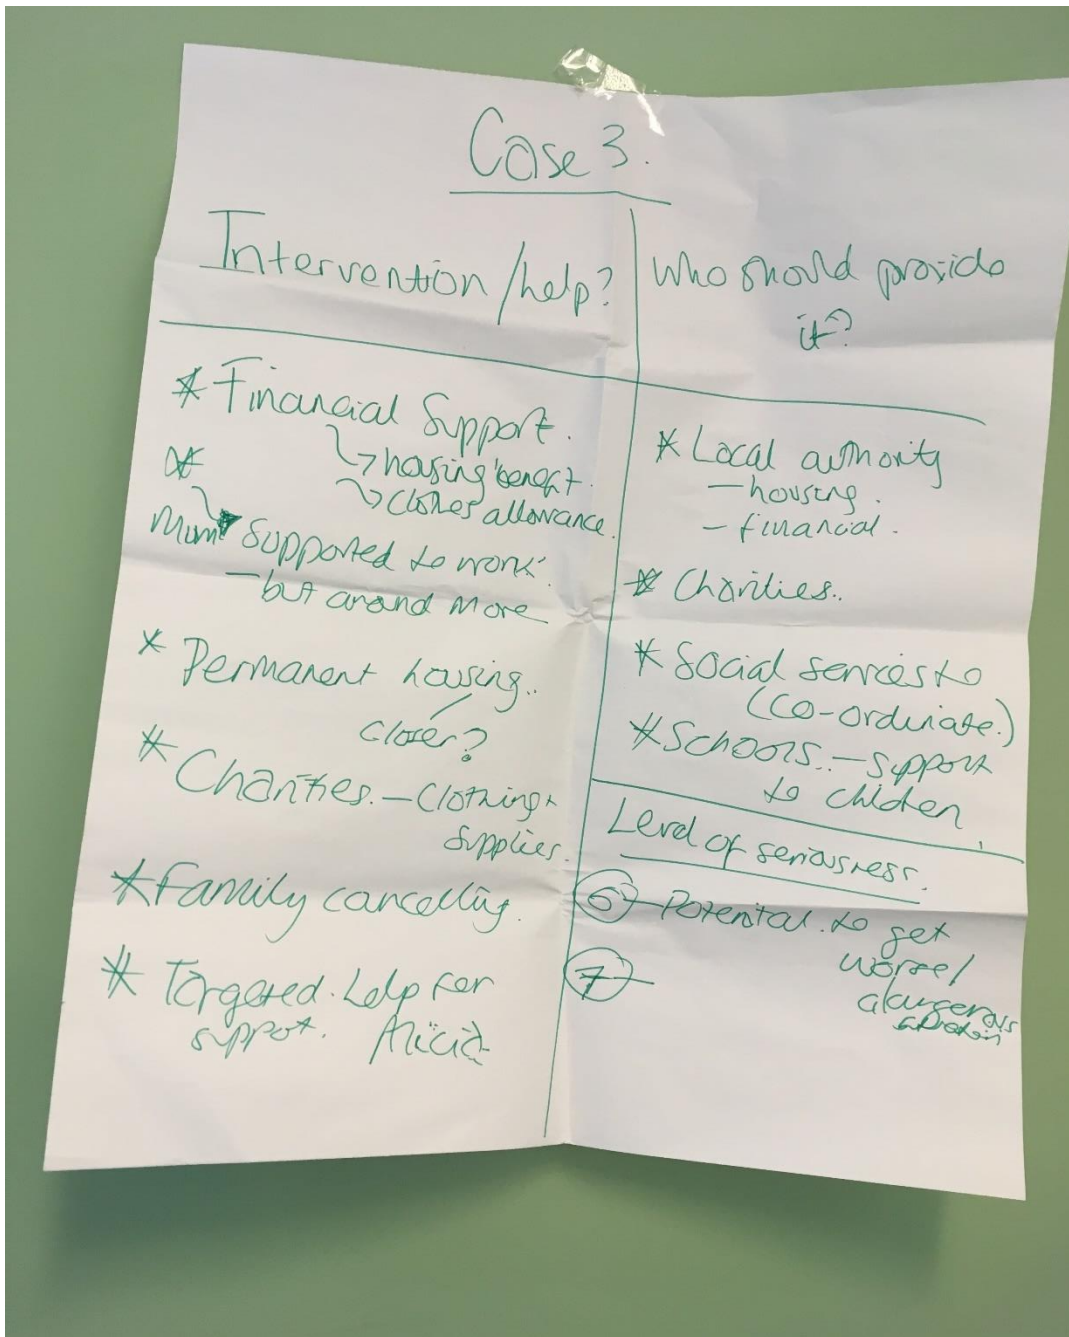 Case 3.
Intervention/help?
* Financial Support.
↳ housing benefit.
↳ clothes allowance.
*
Mum supported to work.
- but around more
* Permanent housing..
closer?
* Charities. - Clothing +
supplies.
* Family cancelling.
* Targeted. help for
support. Alicia
Who should provide
it?
* Local authority
- housing.
- financial.
* Charities..
* Social services to
(co-ordinate.)
* Schools.. - support
to children
Level of seriousness.
6 - Potential. to get
worse/
dangerous
7 -